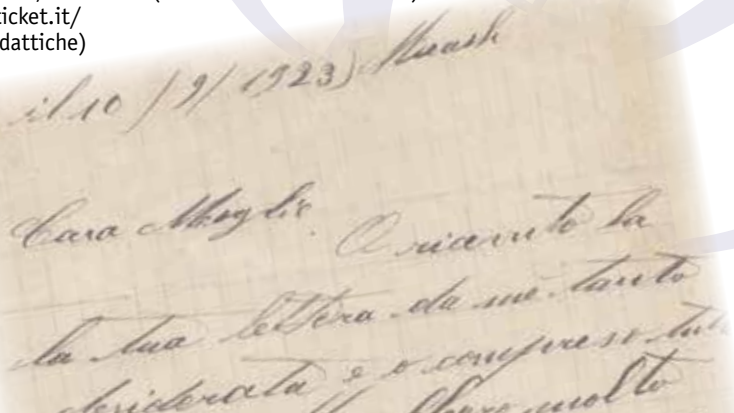 icket.it/
dattiche)
il 10 / 9 / 1923)
Cara Moglie O ricevuto la
la tua lettera da me tanto
desiderata e o compreso tutt
molto